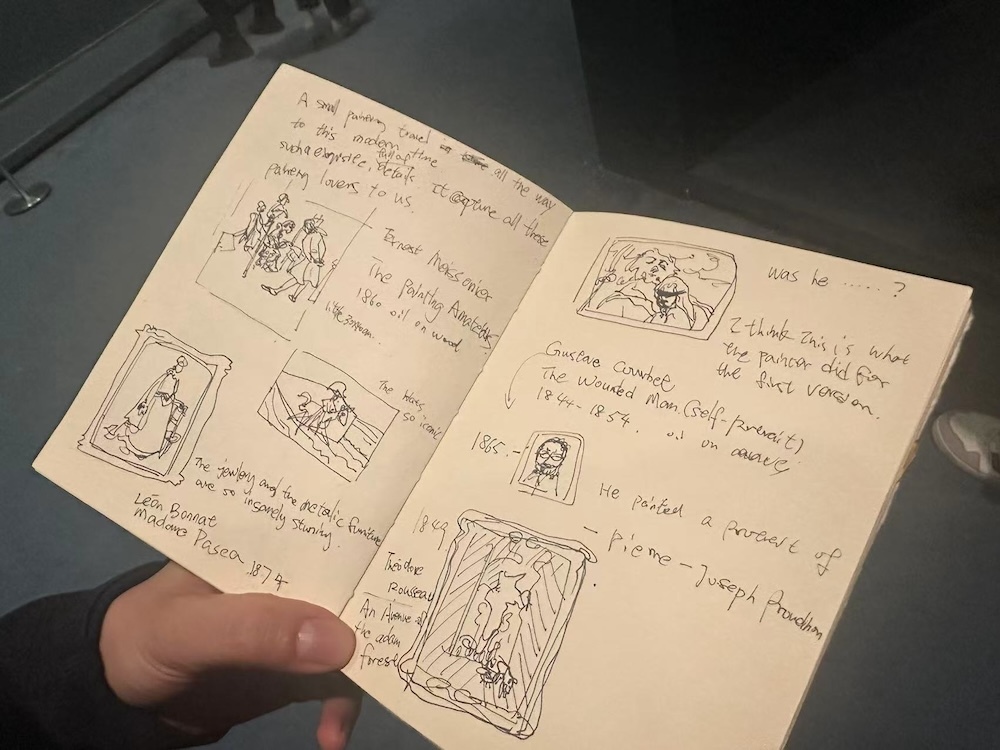 A small painting travel all the way
to this modern time
such exquisite, full of details. It capture all these
painting lovers to us.
Ernest Meissonier
The Painting Amateurs
1860 oil on wood
The blues,
so iconic
The jewlery and the metalic furniture
are so insanely stunning.
Léon Bonnat
Madame Pasca 1874
was he ......?
I think this is what
the painter did for
the first version.
Gustave Courbet
The Wounded Man. (self-portrait)
1844-1854. oil on
1865.-
He painted a of
Pierre-Joseph Proudhon
1849.
Theodore
Rousseau
An Avenue of
the adam
forest